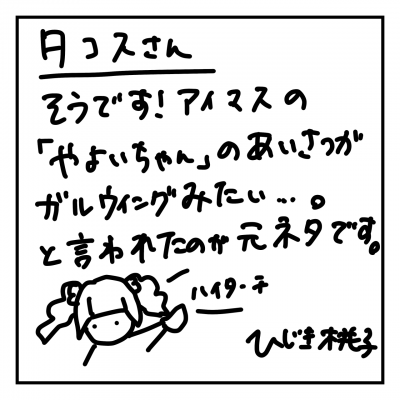 タコスさん
そうです!アイマスの
「やよいちゃん」のあいさつが
ガルウィングみたい…。
と言われたのが元ネタです。
ハイター チ
ひじき桃子